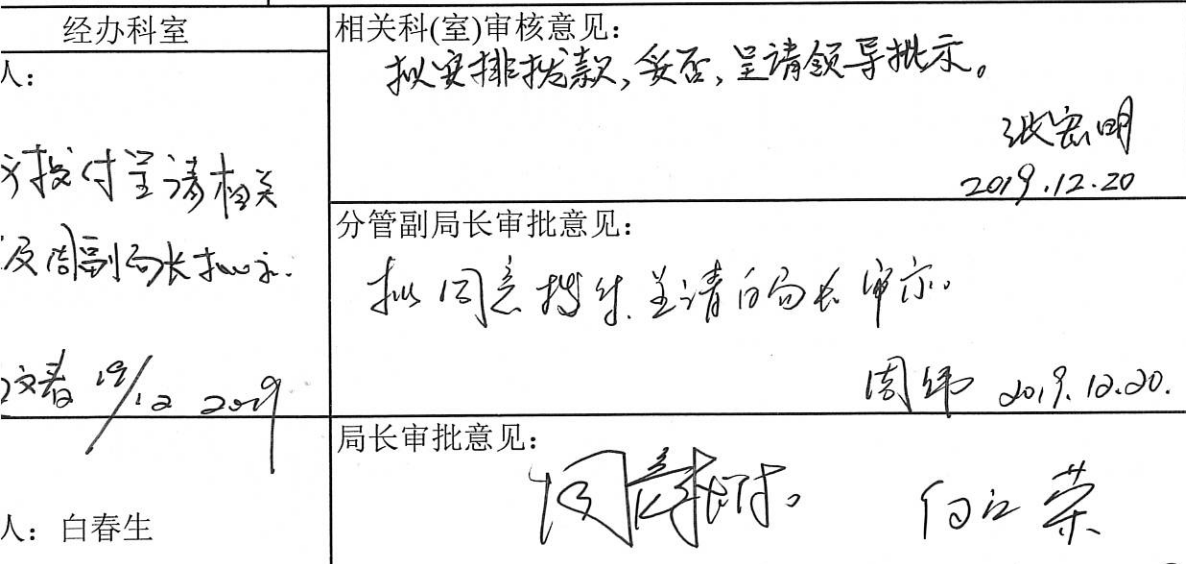 经办科室
人：
拨付呈请相关
及周副局长批示.
文春 19/12 2019
人：白春生
相关科(室)审核意见：
拟安排拨款,妥否,呈请领导批示。
张宏明
2019.12.20
分管副局长审批意见：
拟同意拨付.呈请向局长审示。
周纬 2019.12.20.
局长审批意见：
同意拨付。 向江荣